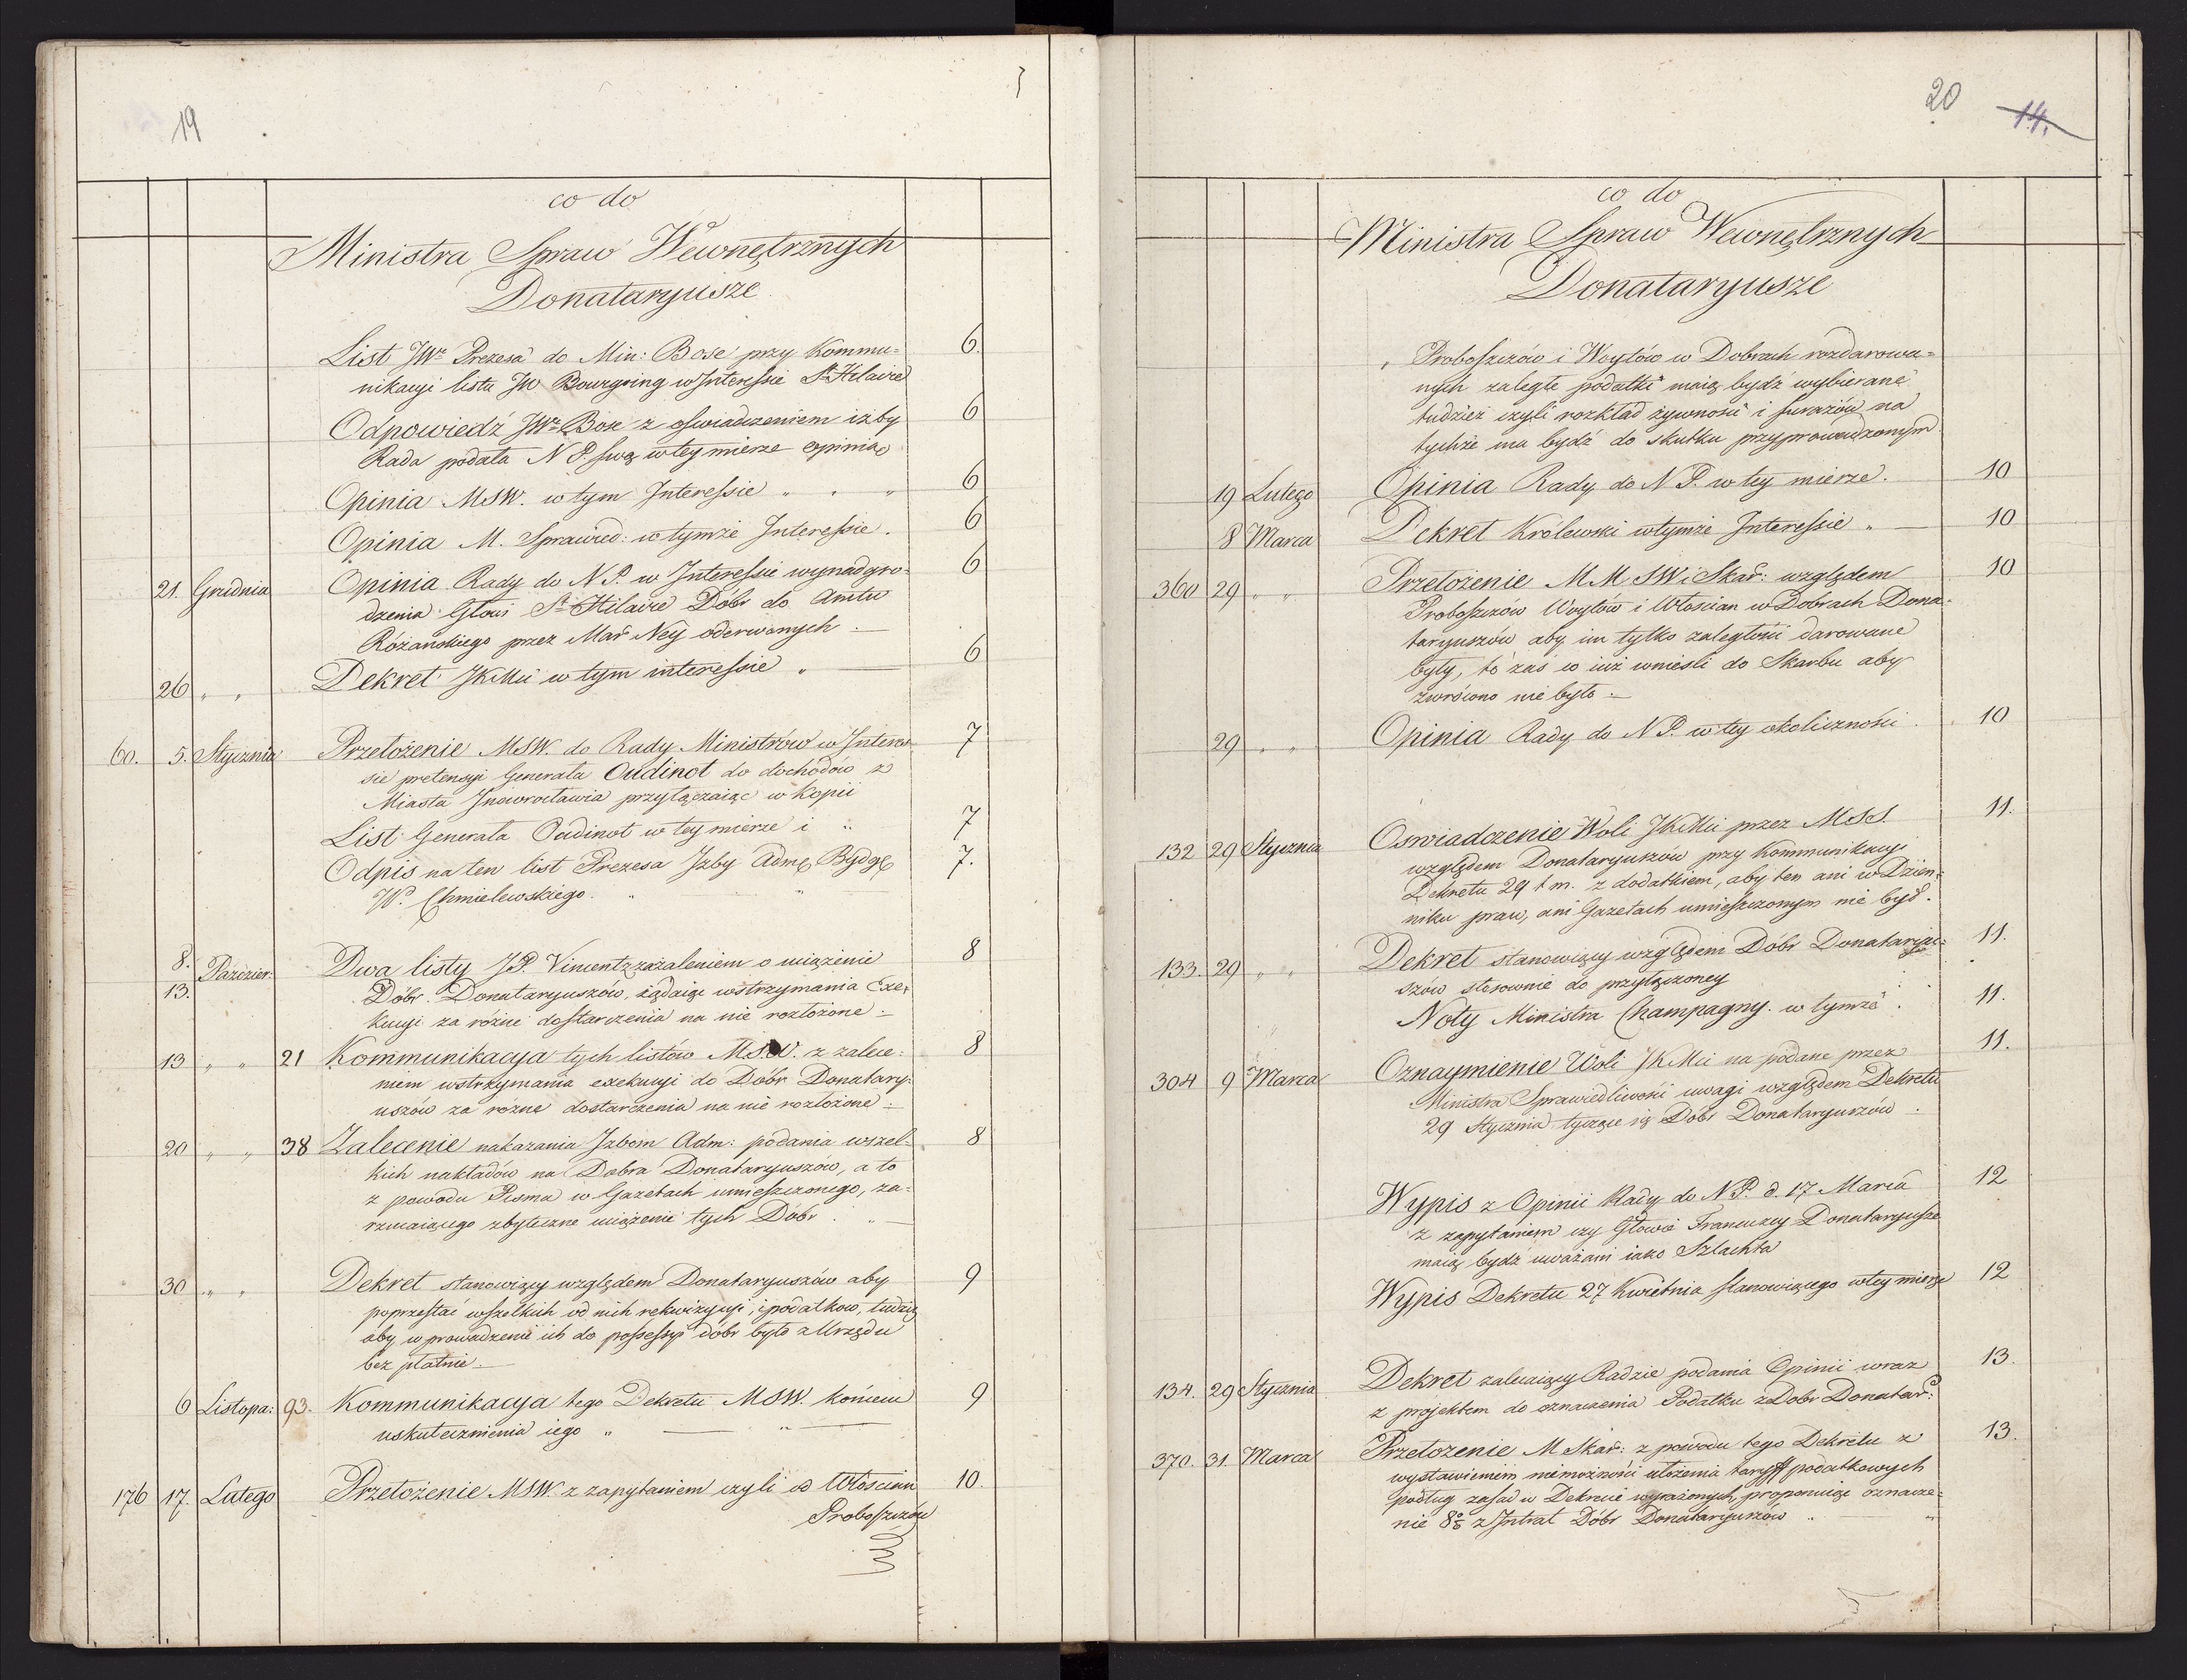 19
co do
Ministra Spraw Wewnętrznych
Donataryusze
List JWo Prezesa do Min: Bose przy Kommu=
nikacyi listu JW Bourgoing w Interessie St Hilaire
6.
Odpowiedź JWo Bose z oświadczeniem izby
Rada podała N P. swą w tey mierze opinią
6
Opinia MSW. w tym Interessie " . "
6
Opinia M. Sprawied: w tymże Interessie .
6
21. Grudnia Opinia Rady do N P. w Interessie wynadgro=
dzenia Głowi St Hilaire Dóbr do Amtu
Różańskiego przez Mar Ney oderwanych
6
26 " " Dekret JKMci w tym interessie "
6
60. 5. Stycznia Przełożenie MSW. do Rady Ministrów w Interes=
sie pretensyi Generała Oudinot do dochodów z
Miasta Jnowrocławia przyłączaiąc w kopii
7
List Generała Oudinot w tey mierze i "
7
Odpis na ten list Prezesa Jzby Adm Bydg
Wo Chmielewskiego. "
7.
8.
13. Paździer: Dwa listy JP. Vincent z zażaleniem o uciążenie
Dóbr Donataryuszów, żądaiąc wstrzymania Exe=
kucyi za różne dostarczenia na nie rozłożone
8
13 " " 21 Kommunikacya tych listów M.S.W. z zalece=
niem wstrzymania exekucyi do Dóbr Donatary=
uszów za różne dostarczenia na nie rozłożone
8
20 " " 38 Zalecenie nakazania Jzbom Adm: podania wszel=
kich nakładów na Dobra Donataryuszów, a to
z powodu Pisma w Gazetach umieszczonego, za=
rzucaiącego zbyteczne uciążenie tych Dóbr . "
8
30 " " Dekret stanowiący względem Donataryuszów aby
poprzestać wszelkich od nich rekwizycyi, i podatkow, tudzież
aby wprowadzenie ich do possessyi dóbr było z Urzędu
bez płatnie
9
6 Listopa: 93. Kommunikacya tego Dekretu MSW. końcem
uskutecznienia iego "
9
176 17. Lutego Przełożenie MSW. z zapytaniem czyli od Włościan
Proboszczów
10.
20 14.
co do
Ministra Spraw Wewnętrznych
Donataryusze
Proboszczów i Woytów w Dobrach rozdarowa=
nych zaległe podatki maią bydź wybierane
tudzież czyli rozkład żywności i furażów na
tychże ma bydź do skutku przyprowadzonym
19 Lutego Opinia Rady do N P. w tey mierze.
10
8 Marca Dekret Królewski w tymże Interessie "
10
360 29 " " Przełożenie M M SW i Skar: względem
Proboszczów Woytów i Włościan w Dobrach Dona=
taryuszów aby im tylko zaległości darowane
były, to zaś co iuż wnieśli do Skarbu aby
zwrócono nie było
10
29 " " Opinia Rady do N P. w tey okoliczności .
10
132 29 Stycznia Oświadczenie Woli JKMci przez MSS.
względem Donataryuszów przy Kommunikacyi
Dekretu 29 t m. z dodatkiem, aby ten ani w Dzien=
niku praw, ani Gazetach umieszczonym nie był.
11.
133. 29 " " Dekret stanowiący względem Dóbr Donataryu=
szów stosownie do przyłączoney
11.
Noty Ministra Champagny. w tymże
11.
304 9 Marca Oznaymienie Woli JKMci na podane przez
Ministra Sprawiedliwości uwagi względem Dekretu
29 Stycznia tyczące się Dóbr Donataryuszów .
11.
Wypis z Opinii Rady do N P. d. 17 Marca
z zapytaniem czy Głowie Francuzcy Donataryusze
maią bydź uważani iako Szlachta
12
Wypis Dekretu 27 Kwietnia stanowiącego w tey mierze
12
134. 29 Stycznia Dekret zalecaiący Radzie podania Opinii wraz
z projektem do oznaczenia Podatku z Dobr Donatar:
13.
370. 31. Marca Przełożenie M Skar: z powodu tego Dekretu z
wystawieniem niemożności ułożenia taryff podatkowych
podług zasad w Dekrecie wyrażonych proponuiąc oznacze=
nie 8% z Intrat Dóbr Donataryuszów "
13.